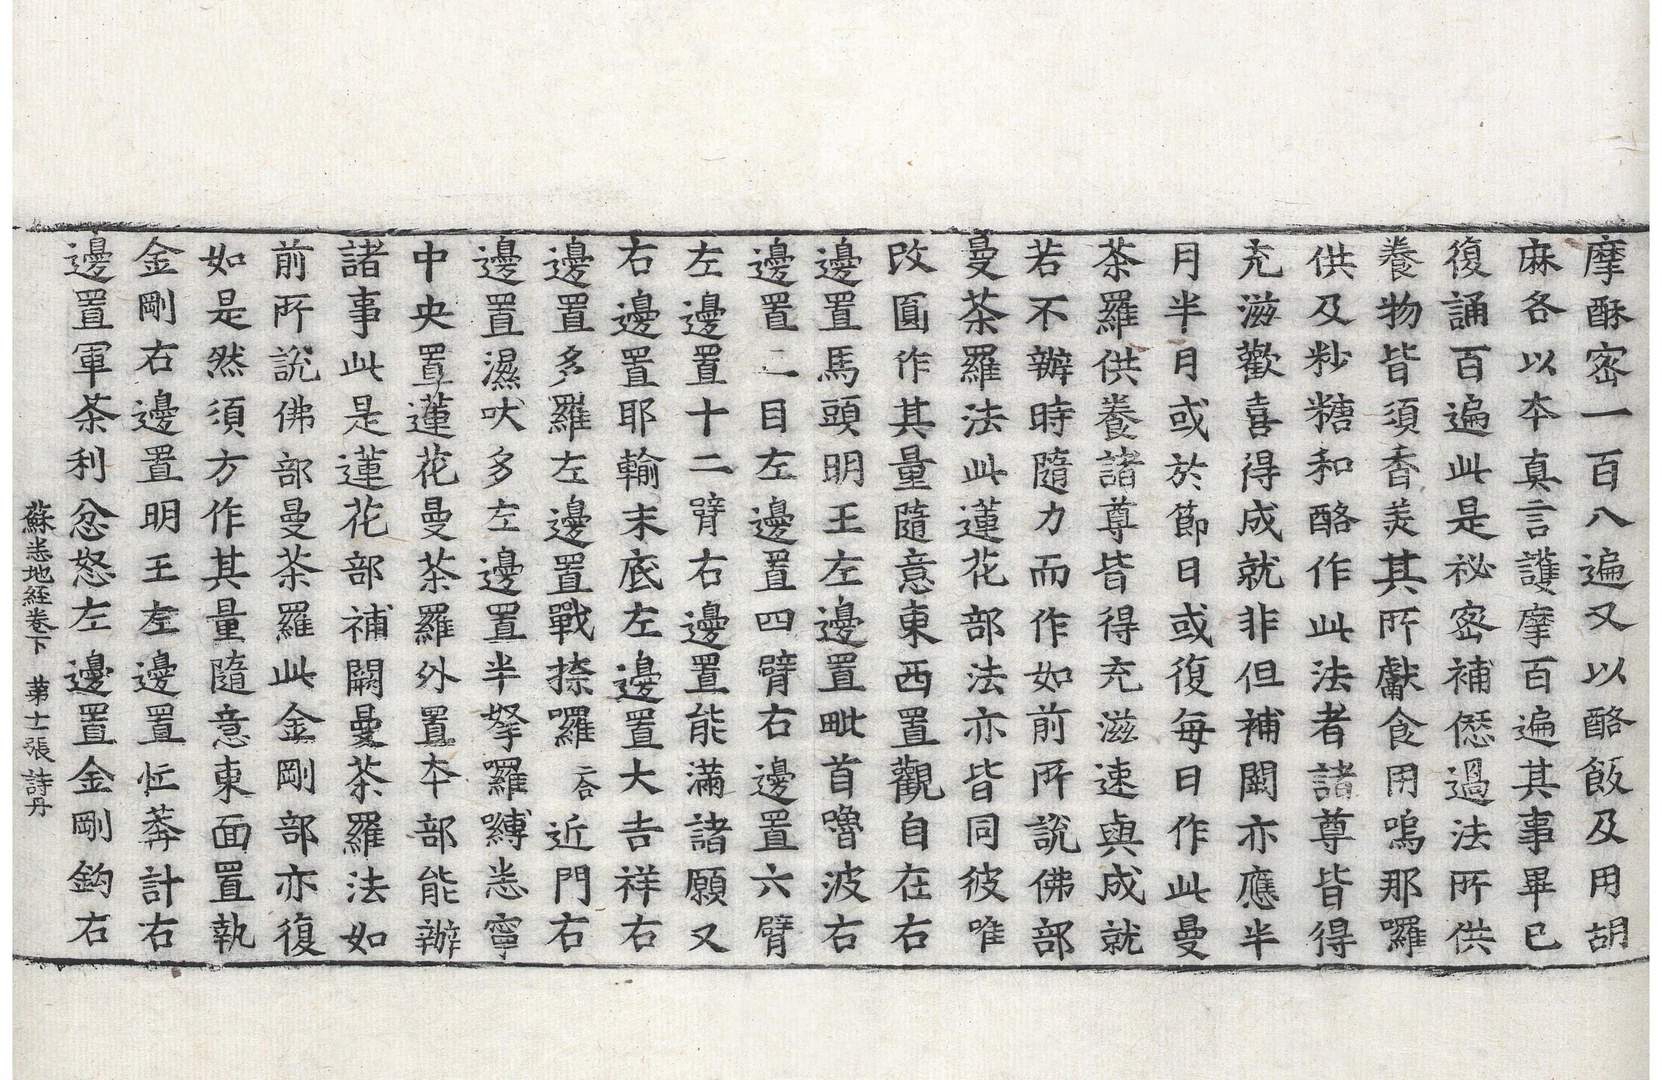 摩酥密一百八遍又以酪飯及用胡
麻各以本真言護摩百遍其事畢已
復誦百遍此是祕密補𠎝過法所供
養物皆須香美其所獻食用嗚那囉
供及粆糖和酪作此法者諸尊皆得
充滋歡喜得成就非但補闕亦應半
月半月或於節日或復每日作此曼
荼羅供養諸尊皆得充滋速與成就
若不辦時隨力而作如前所說佛部
曼荼羅法此蓮花部法亦皆同彼唯
改圓作其量隨意東西置觀自在右
邊置馬頭明王左邊置毗首嚕波右
邊置二目左邊置四臂右邊置六臂
左邊置十二臂右邊置能滿諸願又
右邊置耶輸末底左邊置大吉祥右
邊置多羅左邊置戰捺囉二合近門右
邊置濕吠多左邊置半拏囉嚩悉寧
中央置蓮花曼荼羅外置本部能辦
諸事此是蓮花部補闕曼荼羅法如
前所說佛部曼荼羅此金剛部亦復
如是然須方作其量隨意東面置執
金剛右邊置明王左邊置忙莽計右
邊置軍荼利忿怒左邊置金剛鉤右
蘇悉地經卷下　第十二張　詩丹